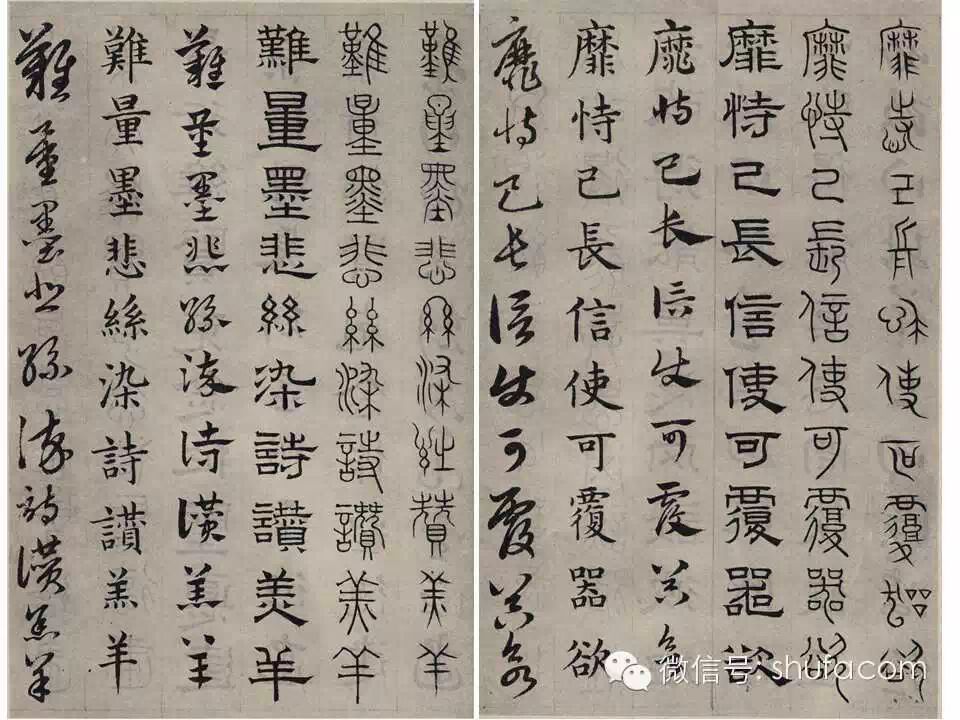 靡恃己長信使可覆器欲
靡恃己長信使可覆器欲
靡恃己長信使可覆器欲
靡恃己长信使可覆器欲
靡恃己長信使可覆器欲
靡恃己長信使可覆器欲
難量墨悲絲染詩讚羔羊
難量墨悲絲染詩讚羔羊
難量墨悲絲染詩讚羔羊
難量墨悲絲染詩讚羔羊
難量墨悲絲染詩讃羔羊
難量墨悲絲染詩讚羔羊
微信号: shufacom